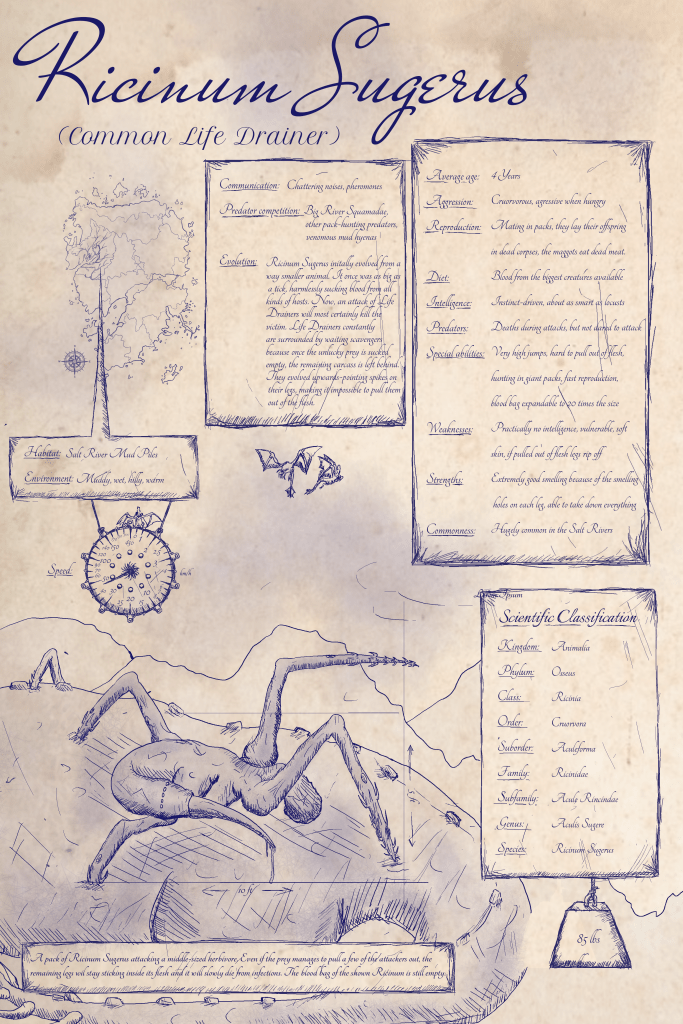 Ricinum Sugerus
(Common Life Drainer)
Communication: Chattering noises, pheromones
Predator competition: Big River Squamadae,
other pack-hunting predators,
venomous mud hyenas
Evolution: Ricinum Sugerus initally evolved from a
way smaller animal. It once was as big as
a tick, harmlessly sucking blood from all
kinds of hosts. Now, an attack of Life
Drainers will most certainly kill the
victim. Life Drainers constantly
are surrounded by waiting scavengers
because once the unlucky prey is sucked
empty, the remaining carcass is left behind.
They evolved upwards-pointing spikes on
their legs, making it impossible to pull them
out of the flesh.
Average age: 4 Years
Aggression: Cruorvorous, agressive when hungry
Reproduction: Mating in packs, they lay their offspring
in dead corpses, the maggots eat dead meat.
Diet: Blood from the biggest creatures available
Intelligence: Instinct-driven, about as smart as locusts
Predators: Deaths during attacks, but not dared to attack
Special abilities: Very high jumps, hard to pull out of flesh,
hunting in giant packs, fast reproduction,
blood bag expandable to 20 times the size
Weaknesses: Practically no intelligence, vulnerable, soft
skin, if pulled out of flesh leg rip off
Strengths: Extremely good smelling because of the smelling
holes on each leg, able to take down everything
Commonness: Hugely common in the Salt Rivers
Habitat: Salt River Mud Piles
Environment: Muddy, wet, hilly, warm
Speed:
km/h
Lorem Ipsum
Scientific Classification
Kingdom: Animalia
Phylum: Osseus
Class: Ricinia
Order: Cruorvora
Suborder: Aculeforma
Family: Ricinidae
Subfamily: Acule Rincindae
Genus: Aculis Sugere
Species: Ricinum Sugerus
5 ft
10 ft
85 lbs
A pack of Ricinum Sugerus attacking a middle-sized herbivore. Even if the prey manages to pull a few of the attackers out, the
remaining legs wil stay sticking inside its flesh and it will slowly die from infections. The blood bag of the shown Ricinum is still empty.